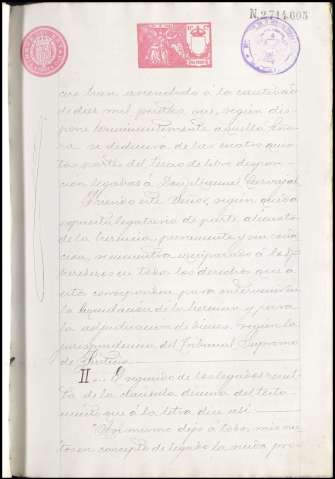 N. 2.714.605
de diez mil pesetas, que, según dis-
pone terminantemente aquella Seño-
ra se deducirá de las cuatro quin-
tas partes del tercio de libre disposi-
ción legadas á
Siendo este Señor, según queda
expuesto legatario de parte alícuota
de la herencia, puramente y sin
herederos en todos los derechos que á
éstos corresponden para intervenir en
la liquidación de la herencia y para
la adjudicación de bienes, según la
jurisprudencia del Tribunal Supremo
de Justicia.
II El segundo de los legados resul-
ta de la cláusula décima del testa-
mento que á la letra dice así:
"Asimismo dejo á todos mis nie-
tos en concepto de legado la nuda pro-